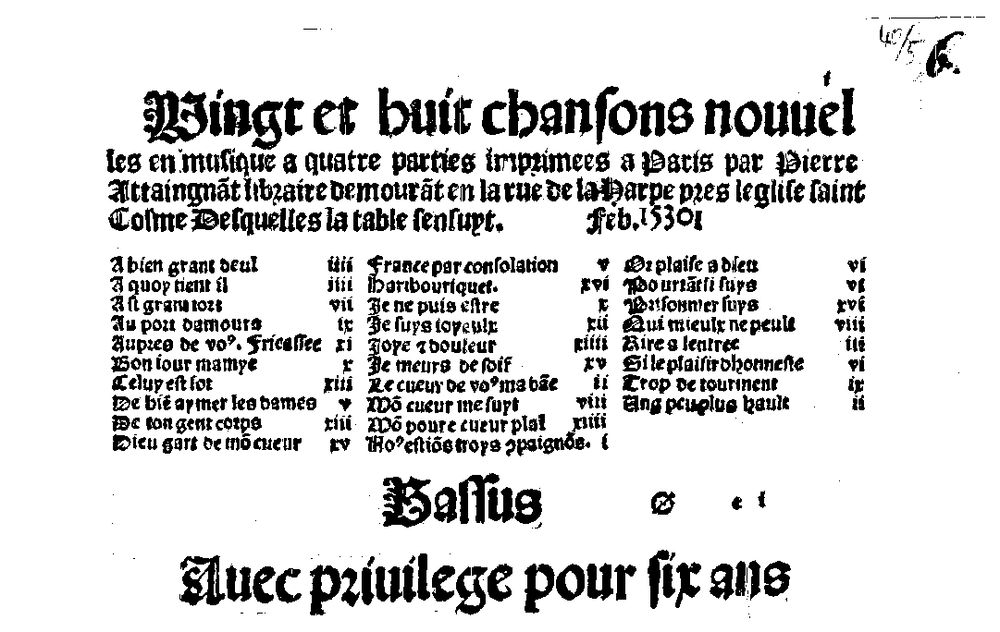 40/5 6.
Vingt et huit chansons nouuel
les en musique a quatre parties imprimees a Paris par Pierre
Attaingnãt libraire demourãt en la rue de la Harpe pres leglise saint
Cosme Desquelles la table sensuyt. Feb. 1530
A bien grant deul iiii
A quoy tient il iiii
A si grant tort vii
Au port damours ix
Aupres de voꝰ. Fricassee xi
Bon iour mamye x
Celuy est sot xiii
De biẽ aymer les dames v
De ton gent corps xiii
Dieu gart de mõ cueur xv
France par consolation v
Hari bouriquet. xvi
Je ne puis estre x
Je suys ioyeulx xii
Joye ⁊ douleur xiiii
Je meurs de soif xv
Le cueur de voꝰ ma bãe ii
Mõ cueur me suyt viii
Mõ poure cueur plai xiiii
Noꝰ estiõs troys ꝯpaignõs. i
Or plaise a dieu vi
Pourtãt si suys vi
Prisonnier suys xv
Qui mieulx ne peult viii
Rire a lentree iii
Si le plaisir dhonneste vi
Trop de tourment ix
Ung peu plus hault ii
Bassus
Auec priuilege pour six ans